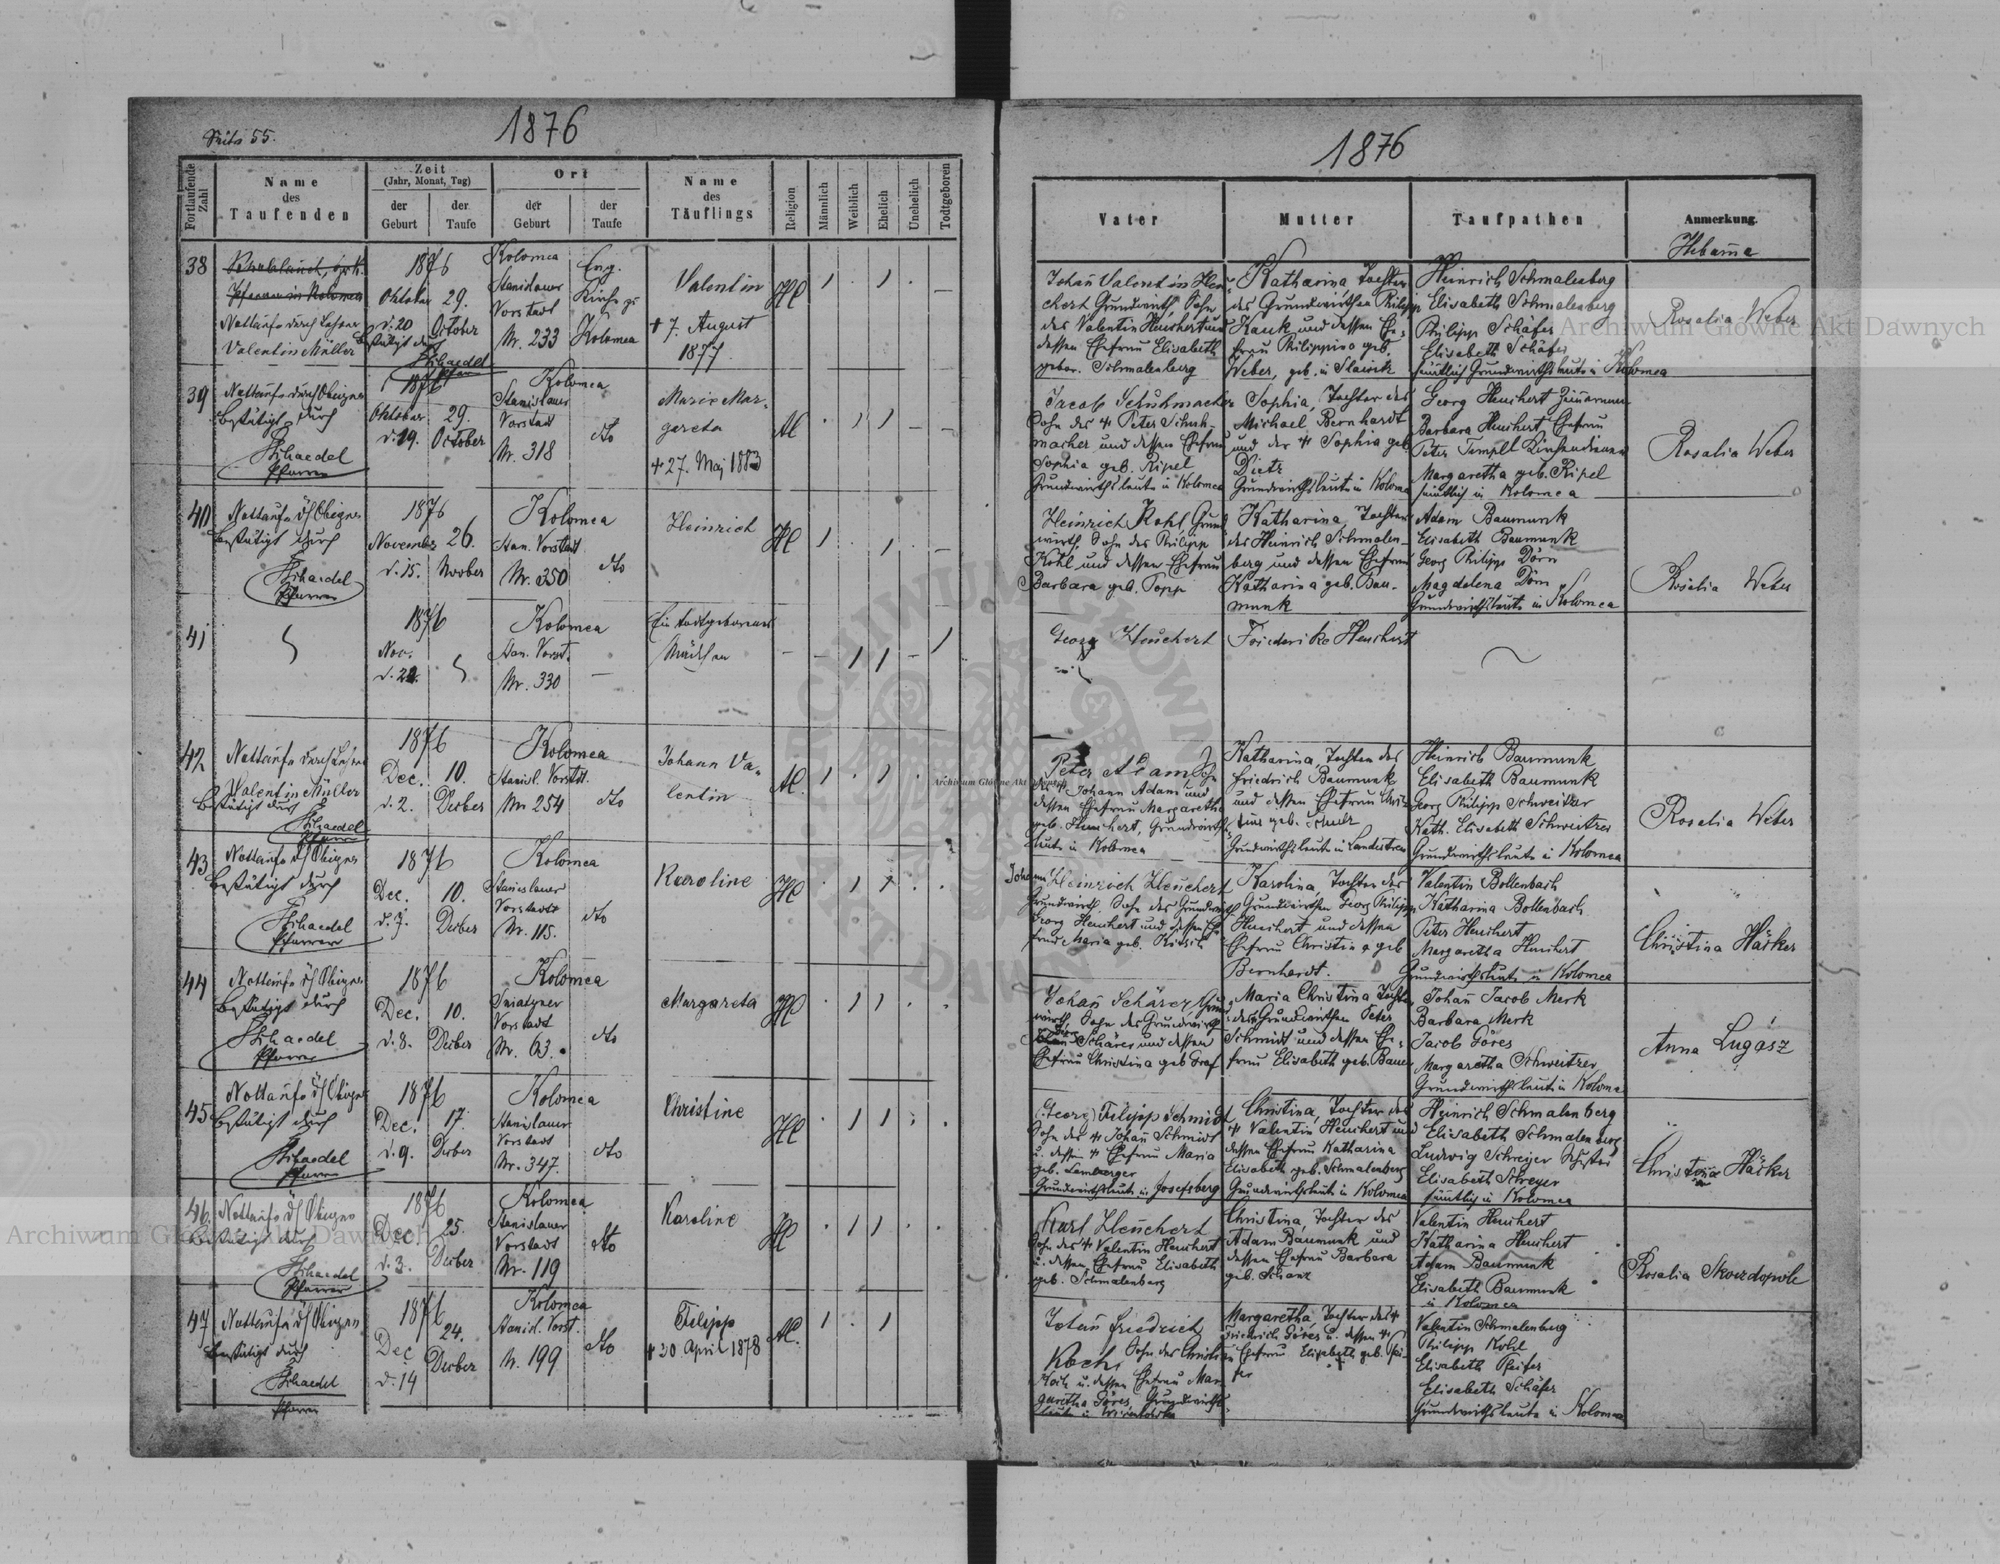 Seite 55.
1876
1876
Fortlaufende Zahl
Name des Taufenden
Zeit
(Jahr, Monat, Tag)
der Geburt
der Taufe
Ort
der Geburt
der Taufe
Name des Täuflings
Religion
Männlich
Weiblich
Ehelich
Unehelich
Todtgeboren
Vater
Mutter
Taufpathen
Anmerkung.
Hebamme
38
Nottaufe durch Lehrer
Valentin Müller
bestätigt durch
Schaedel
Pfarrer
1876
Oktober
d. 20
29.
October
Kolomea
Stanislauer
Vorstadt
Nr. 233
Evng.
Kirche zu
Kolomea
Valentin
+ 7. August
1877.
Johañ Valentin Heu-
chert Grundwirth, Sohn
des Valentin Heuchert und
dessen Ehefrau Elisabeth
gebor. Schmalenberg
Katharina, Tochter
des Grundwirthen Philipp
Kauk und dessen Ehe-
frau Philippine geb.
Weber, geb. in
Heinrich Schmalenberg
Elisabeth Schmalenberg
Philipp Schäfer
Elisabeth Schäfer
sämtlich Grundwirthsleute in Kolomea
Rosalia Weber
39
Nottaufe durch Obigen
bestätigt durch
Schaedel
Pfarrer
1876
Oktober
d. 19.
29.
October
Kolomea
Stanislauer
Vorstadt
Nr. 318
dto
Marie Mar-
gareta
+ 27. Maj 1883
Jacob Schuhmacher
Sohn des + Peter Schuh-
macher und dessen Ehefrau
Sophia geb. Ripel
Grundwirthsleute in Kolomea
Sophia, Tochter des
Michael Bernhardt
und der + Sophia geb
Dietz
Grundwirthsleute in Kolomea
Georg Heuchert
Barbara Heuchert Ehefrau
Peter Templ Kirchendiener
Margaretha geb. Ripel
sämtlich in Kolomea
Rosalia Weber
40
Nottaufe d/ Obigen
bestätigt durch
Schaedel
Pfarrer
1876
November
d. 15.
26.
Novber
Kolomea
Stan. Vorstadt
Nr. 350
dto
Heinrich
Heinrich Kohl Grund
wirth, Sohn des Philipp
Kohl und dessen Ehefrau
Barbara geb. Popp
Katharina, Tochter
des Heinrich Schmalen-
berg und dessen Ehefrau
Katharina geb. Bau-
munk
Adam Baumunk
Elisabeth Baumunk
Georg Philipp Dörn
Magdalena Dörn
Grundwirthsleute in Kolomea
Rosalia Weber
41
1876
Nov.
Kolomea
Stan. Vorst.
Nr. 330
Ein todtgeborenes
Mädchen
Georg Heuchert
Friederike Heuchert
42
Nottaufe durch Lehrer
Valentin Müller
bestätigt durch
Schaedel
Pfarrer
1876
Dec.
d. 2.
10.
Decber
Kolomea
Stanisl. Vorstdt.
Nr 254
dto
Johann Va-
lentin
Peter Adam
des + Johann Adam und
dessen Ehefrau Margaretha
geb. Heuchert, Grundwirths-
leute in Kolomea
Katharina, Tochter des
Friedrich Baumunk
und dessen Ehefrau
geb.
Grundwirthsleute in Landestreu
Heinrich Baumunk
Elisabeth Baumunk
Georg Philipp Schweitzer
Kath. Elisabeth Schweitzer
Grundwirthsleute in Kolomea
Rosalia Weber
43
Nottaufe d/ Obigen
bestätigt durch
Schaedel
Pfarrer
1876
Dec.
d. 7.
10.
Decber
Kolomea
Stanislauer
Vorstadt
Nr. 115.
dto
Karoline
Johann Heinrich Heuchert
Grundwirth, Sohn des Grundwirth
Georg Heuchert und dessen Ehe-
frau Maria geb.
Karolina, Tochter des
Grundwirthen Georg Philipp
Heuchert und dessen
Ehefrau Christina geb
Bernhardt.
Valentin Bollenbach
Katharina Bollenbach
Peter Heuchert
Margaretha Heuchert
Grundwirthsleute in Kolomea
Christina Häcker
44
Nottaufe d/ Obigen
bestätigt durch
Schaedel
Pfarrer
1876
Dec.
d. 8.
10.
Decber
Kolomea
Sniatyner
Vorstadt
Nr. 63.
dto
Margareta
Johañ Schärer Grund
wirth, Sohn des Grundwirth
Schärer und dessen
Ehefrau Christina geb Graf
Maria Christina Tochter
des Grundwirthen Peter
Schmidt und dessen Ehe-
frau Elisabeth geb. Bauer
Johañ Jacob Merk
Barbara Merk
Jacob Göres
Margaretha Schweitzer
Grundwirthsleute in Kolomea
Anna Lugosz
45
Nottaufe d/ Obigen
bestätigt durch
Schaedel
Pfarrer
1876
Dec.
d. 9.
17.
Decber
Kolomea
Stanislauer
Vorstadt
Nr. 347.
dto
Christine
(Georg) Filipp Schmidt
Sohn des + Johañ Schmidt
u. dessen + Ehefrau Maria
geb. Lemberger
Grundwirthsleute in Josefsberg
Christina, Tochter des
+ Valentin Heuchert und
dessen Ehefrau Katharina
Elisabeth geb. Schmalenberg
Grundwirthsleute in Kolomea
Heinrich Schmalenberg
Elisabeth Schmalenberg
Ludwig Schreyer
Elisabeth Schreyer
sämtlich in Kolomea
Christina Häcker
46
Nottaufe d/ Obigen
bestätigt durch
Schaedel
Pfarrer
1876
Dec.
d. 3.
25.
Decber
Kolomea
Stanislauer
Vorstadt
Nr. 119
dto
Karoline
Karl Heuchert
Sohn des + Valentin Heuchert
u. dessen Ehefrau Elisabeth
geb. Schmalenberg
Christina, Tochter des
Adam Baumunk und
dessen Ehefrau Barbara
geb. Schanz
Valentin Heuchert
Katharina Heuchert
Adam Baumunk
Elisabeth Baumunk
in Kolomea
Rosalia Skowdopole
47
Nottaufe d/ Obigen
bestätigt durch
Schaedel
Pfarrer
1876
Dec
d. 14
24.
Decber
Kolomea
Stanisl. Vorst.
N. 199
dto
Filipp
+ 20 April 1878
Johañ Friedrich
Koch, Sohn des
Koch u. dessen Ehefrau Mar-
garetha Göres, Grundwirths-
leute in
Margaretha, Tochter des +
Friedrich Göres u. dessen +
Ehefrau Elisabeth geb. Pfei-
fer
Valentin Schmalenberg
Philipp Kohl
Elisabeth Pfeifer
Elisabeth Schäfer
Grundwirthsleute in Kolomea
Archiwum Główne Akt Dawnych
Archiwum Główne Akt Dawnych
Archiwum Główne Akt Dawnych